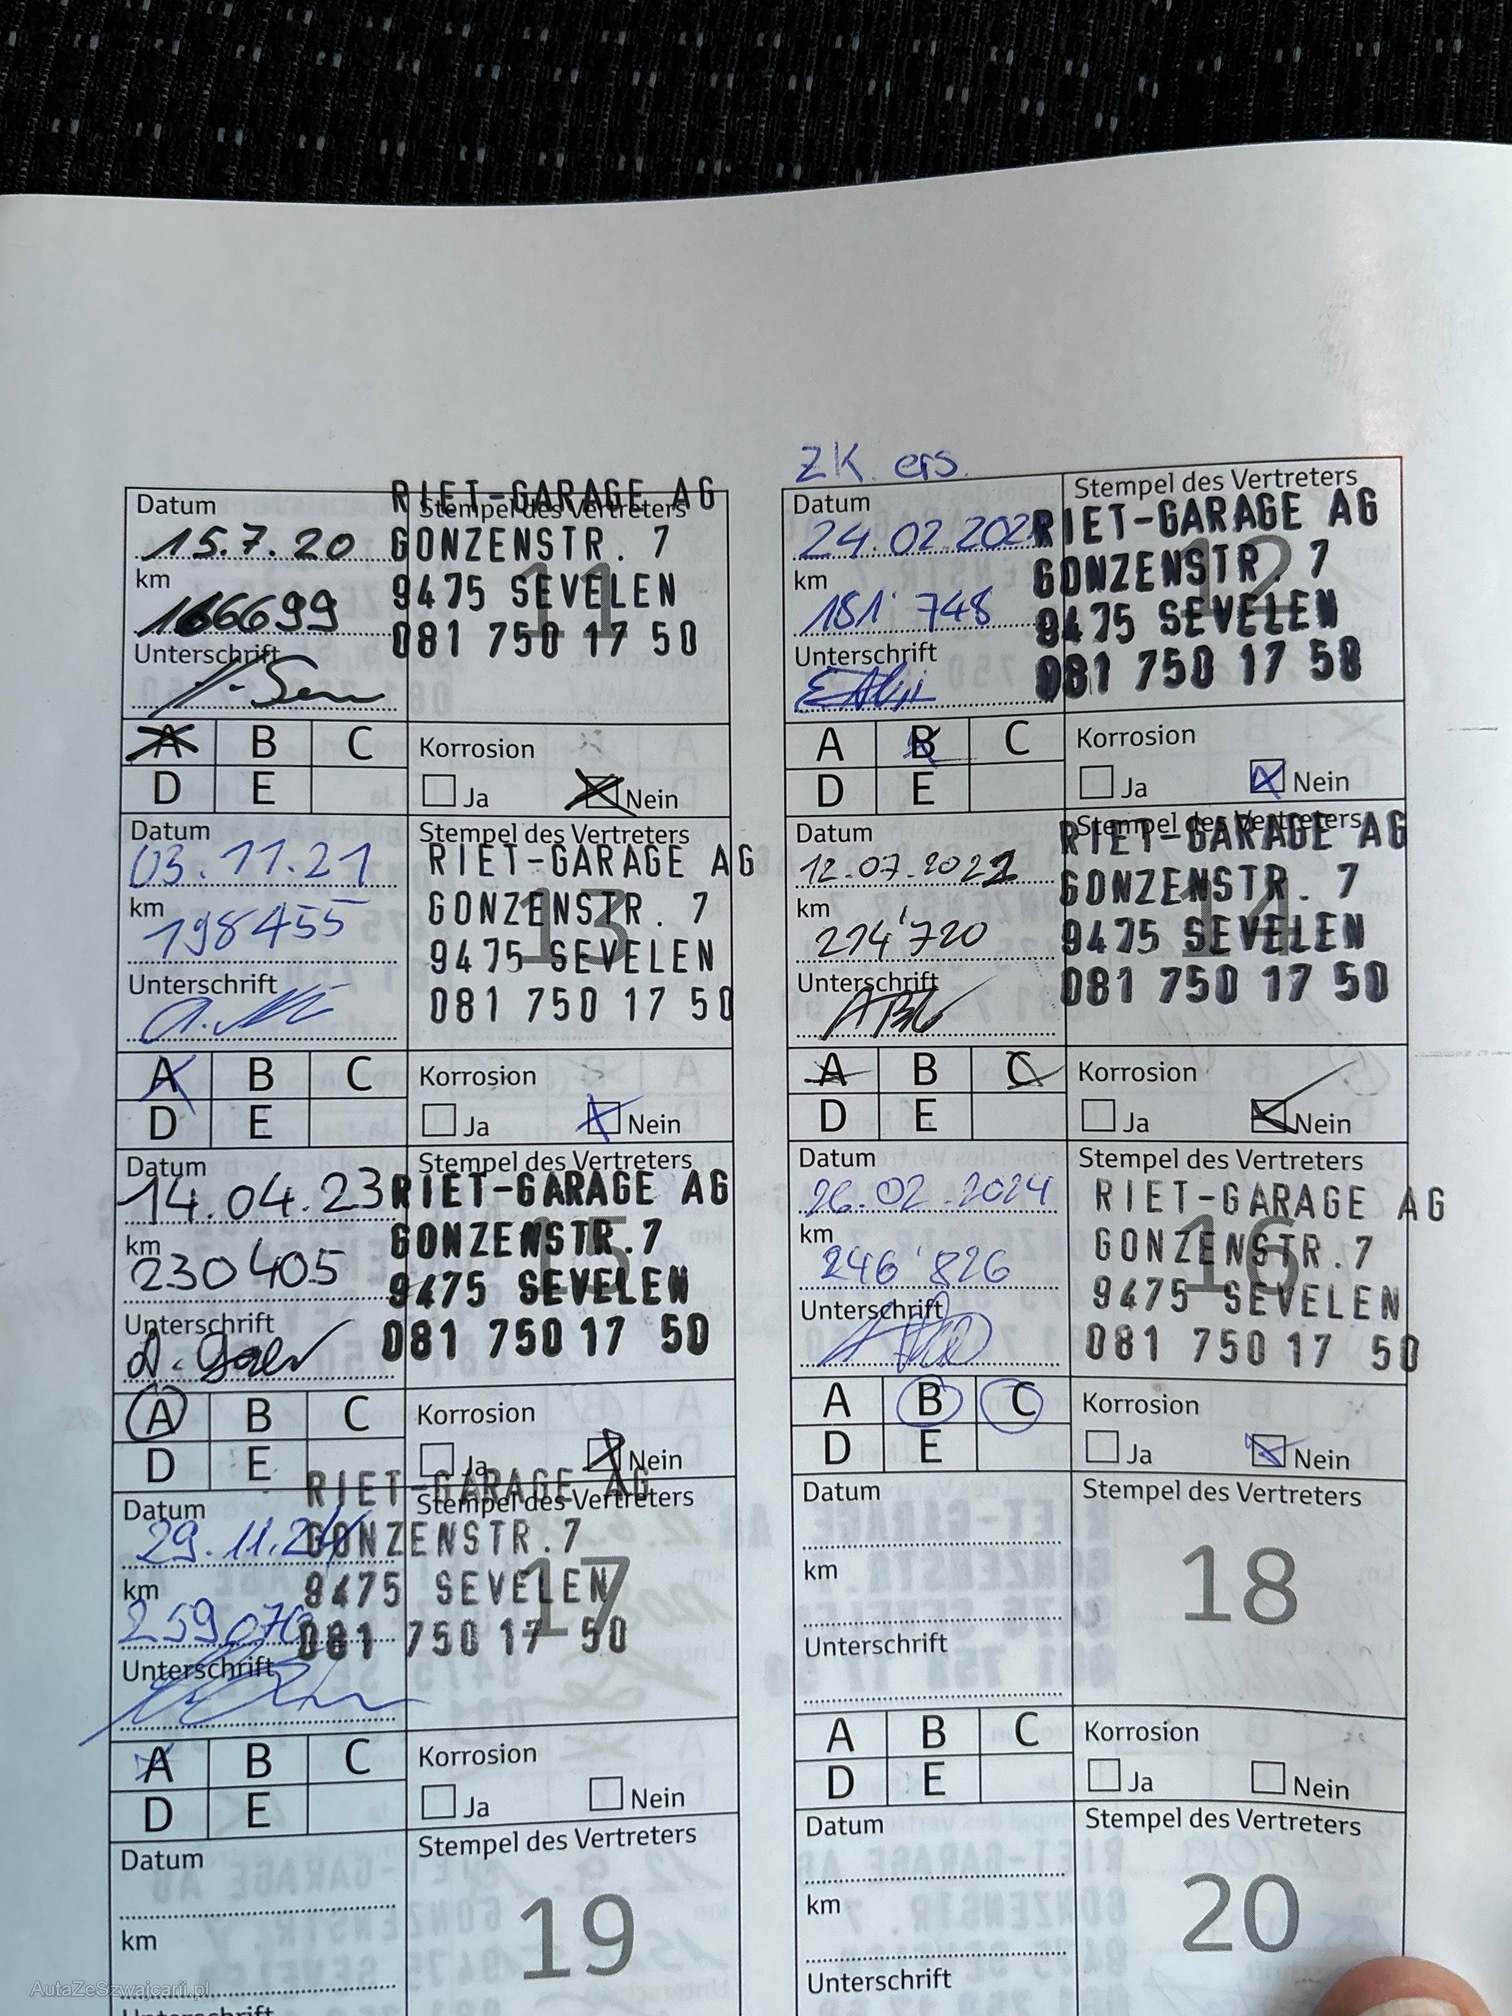 ZK. ers.
Datum
15.7.20
km
166699
Unterschrift
Stempel des Vertreters
11
RIET-GARAGE AG
GONZENSTR. 7
9475 SEVELEN
081 750 17 50
A B C
D E
Korrosion
Ja Nein
Datum
24.02.202
km
181'748
Unterschrift
Stempel des Vertreters
12
RIET-GARAGE AG
GONZENSTR. 7
9475 SEVELEN
081 750 17 50
A B C
D E
Korrosion
Ja Nein
Datum
03.11.21
km
198455
Unterschrift
Stempel des Vertreters
13
RIET-GARAGE AG
GONZENSTR. 7
9475 SEVELEN
081 750 17 50
A B C
D E
Korrosion
Ja Nein
Datum
12.07.2022
km
214'720
Unterschrift
Stempel des Vertreters
14
RIET-GARAGE AG
GONZENSTR. 7
9475 SEVELEN
081 750 17 50
A B C
D E
Korrosion
Ja Nein
Datum
14.04.23
km
230405
Unterschrift
Stempel des Vertreters
15
RIET-GARAGE AG
GONZENSTR.7
9475 SEVELEN
081 750 17 50
A B C
D E
Korrosion
Ja Nein
Datum
26.02.2024
km
246'826
Unterschrift
Stempel des Vertreters
16
RIET-GARAGE AG
GONZENSTR.7
9475 SEVELEN
081 750 17 50
A B C
D E
Korrosion
Ja Nein
Datum
29.11.24
km
Unterschrift
Stempel des Vertreters
17
RIET-GARAGE AG
GONZENSTR.7
9475 SEVELEN
081 750 17 50
A B C
D E
Korrosion
Ja Nein
Datum
km
Unterschrift
Stempel des Vertreters
18
A B C
D E
Korrosion
Ja Nein
Datum
km
Unterschrift
Stempel des Vertreters
19
Datum
km
Unterschrift
Stempel des Vertreters
20
AutaZeSzwajcarii.pl